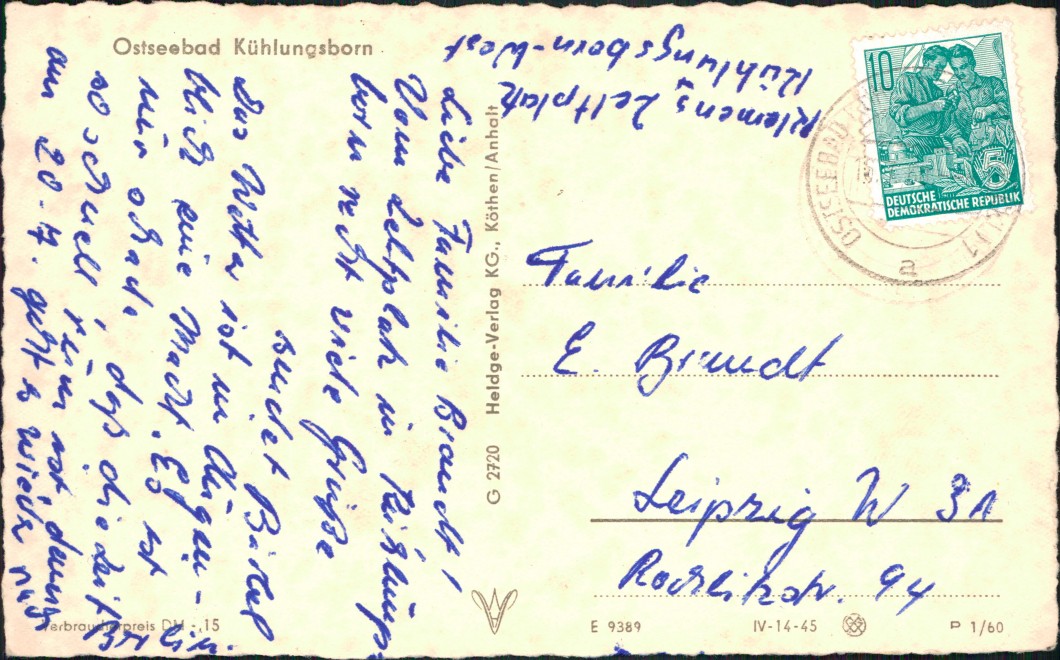 Ostseebad Kühlungsborn
Klemens Zeltplatz
Kühlungsborn-West
Liebe Familie Brandt!
Vom Zeltplatz in Kühlungs-
born recht viele Grüße
sendet Bärbel
Das Wetter ist im Augen-
blick eine Macht. Es ist
nur schade, daß die Zeit
so schnell rum ist, denn
am 20.7. geht's wieder nach
Berlin.
Verbraucherpreis DM -,15
G 2720 Heldge-Verlag KG., Köthen/Anhalt
10
5
DEUTSCHE
DEMOKRATISCHE REPUBLIK
OSTSEEBAD
a
Familie
E. Brandt
Leipzig W 31
Rochlitzstr. 94
E 9389
IV-14-45
P 1/60